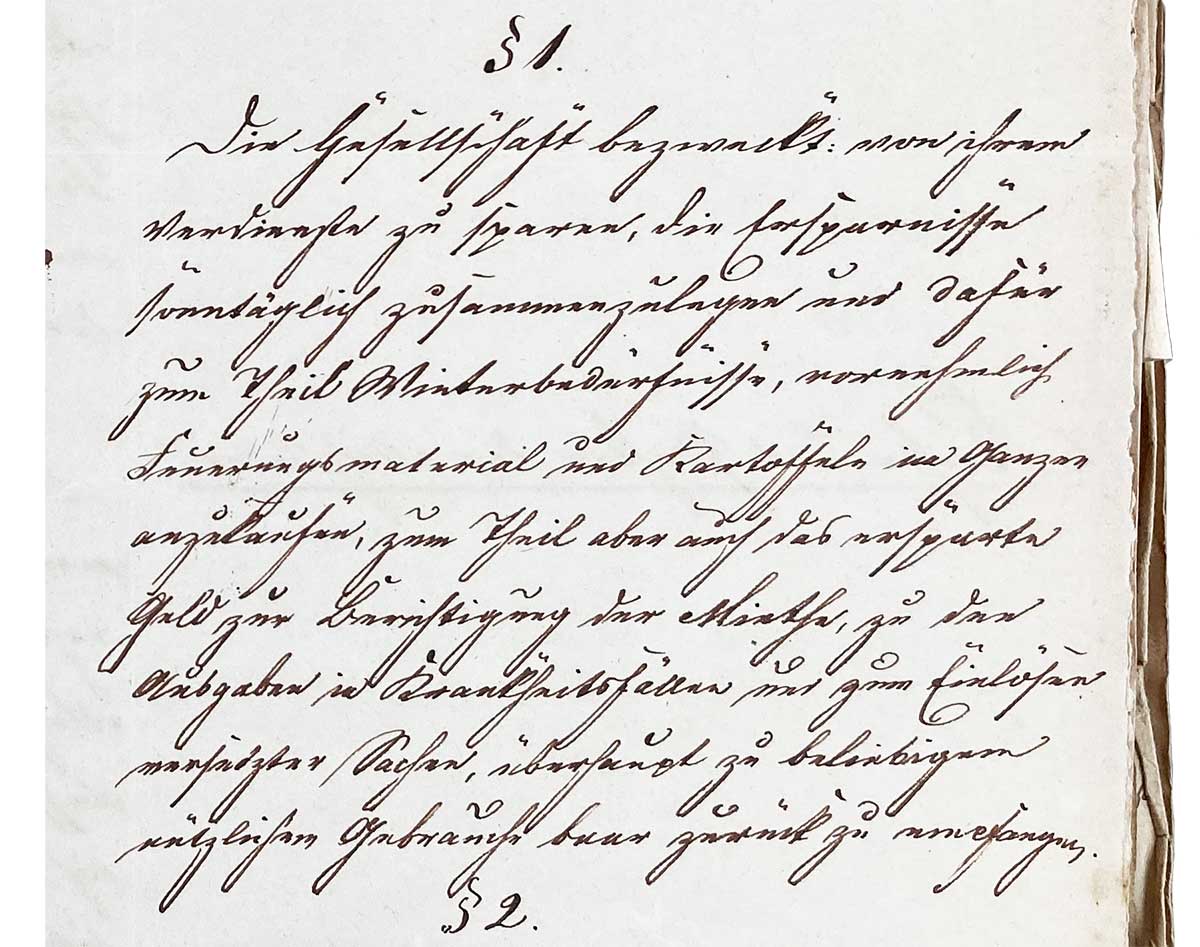 § 1.
Die Gesellschaft bezweckt: von ihrem
Verdienste zu sparen, die Ersparnisse
sonntäglich zusammenzulegen und dafür
zum Theil Winterbedürfnisse, vornehmlich
Feuerungsmaterial und Kartoffeln im Ganzen
anzukaufen, zum Theil aber auch das ersparte
Geld zur Berichtigung der Miethe, zu den
Ausgaben in Krankheitsfällen und zum Einlösen
versetzter Sachen, überhaupt zu beliebigem
nützlichem Gebrauche baar zurück zu empfangen.
§ 2.